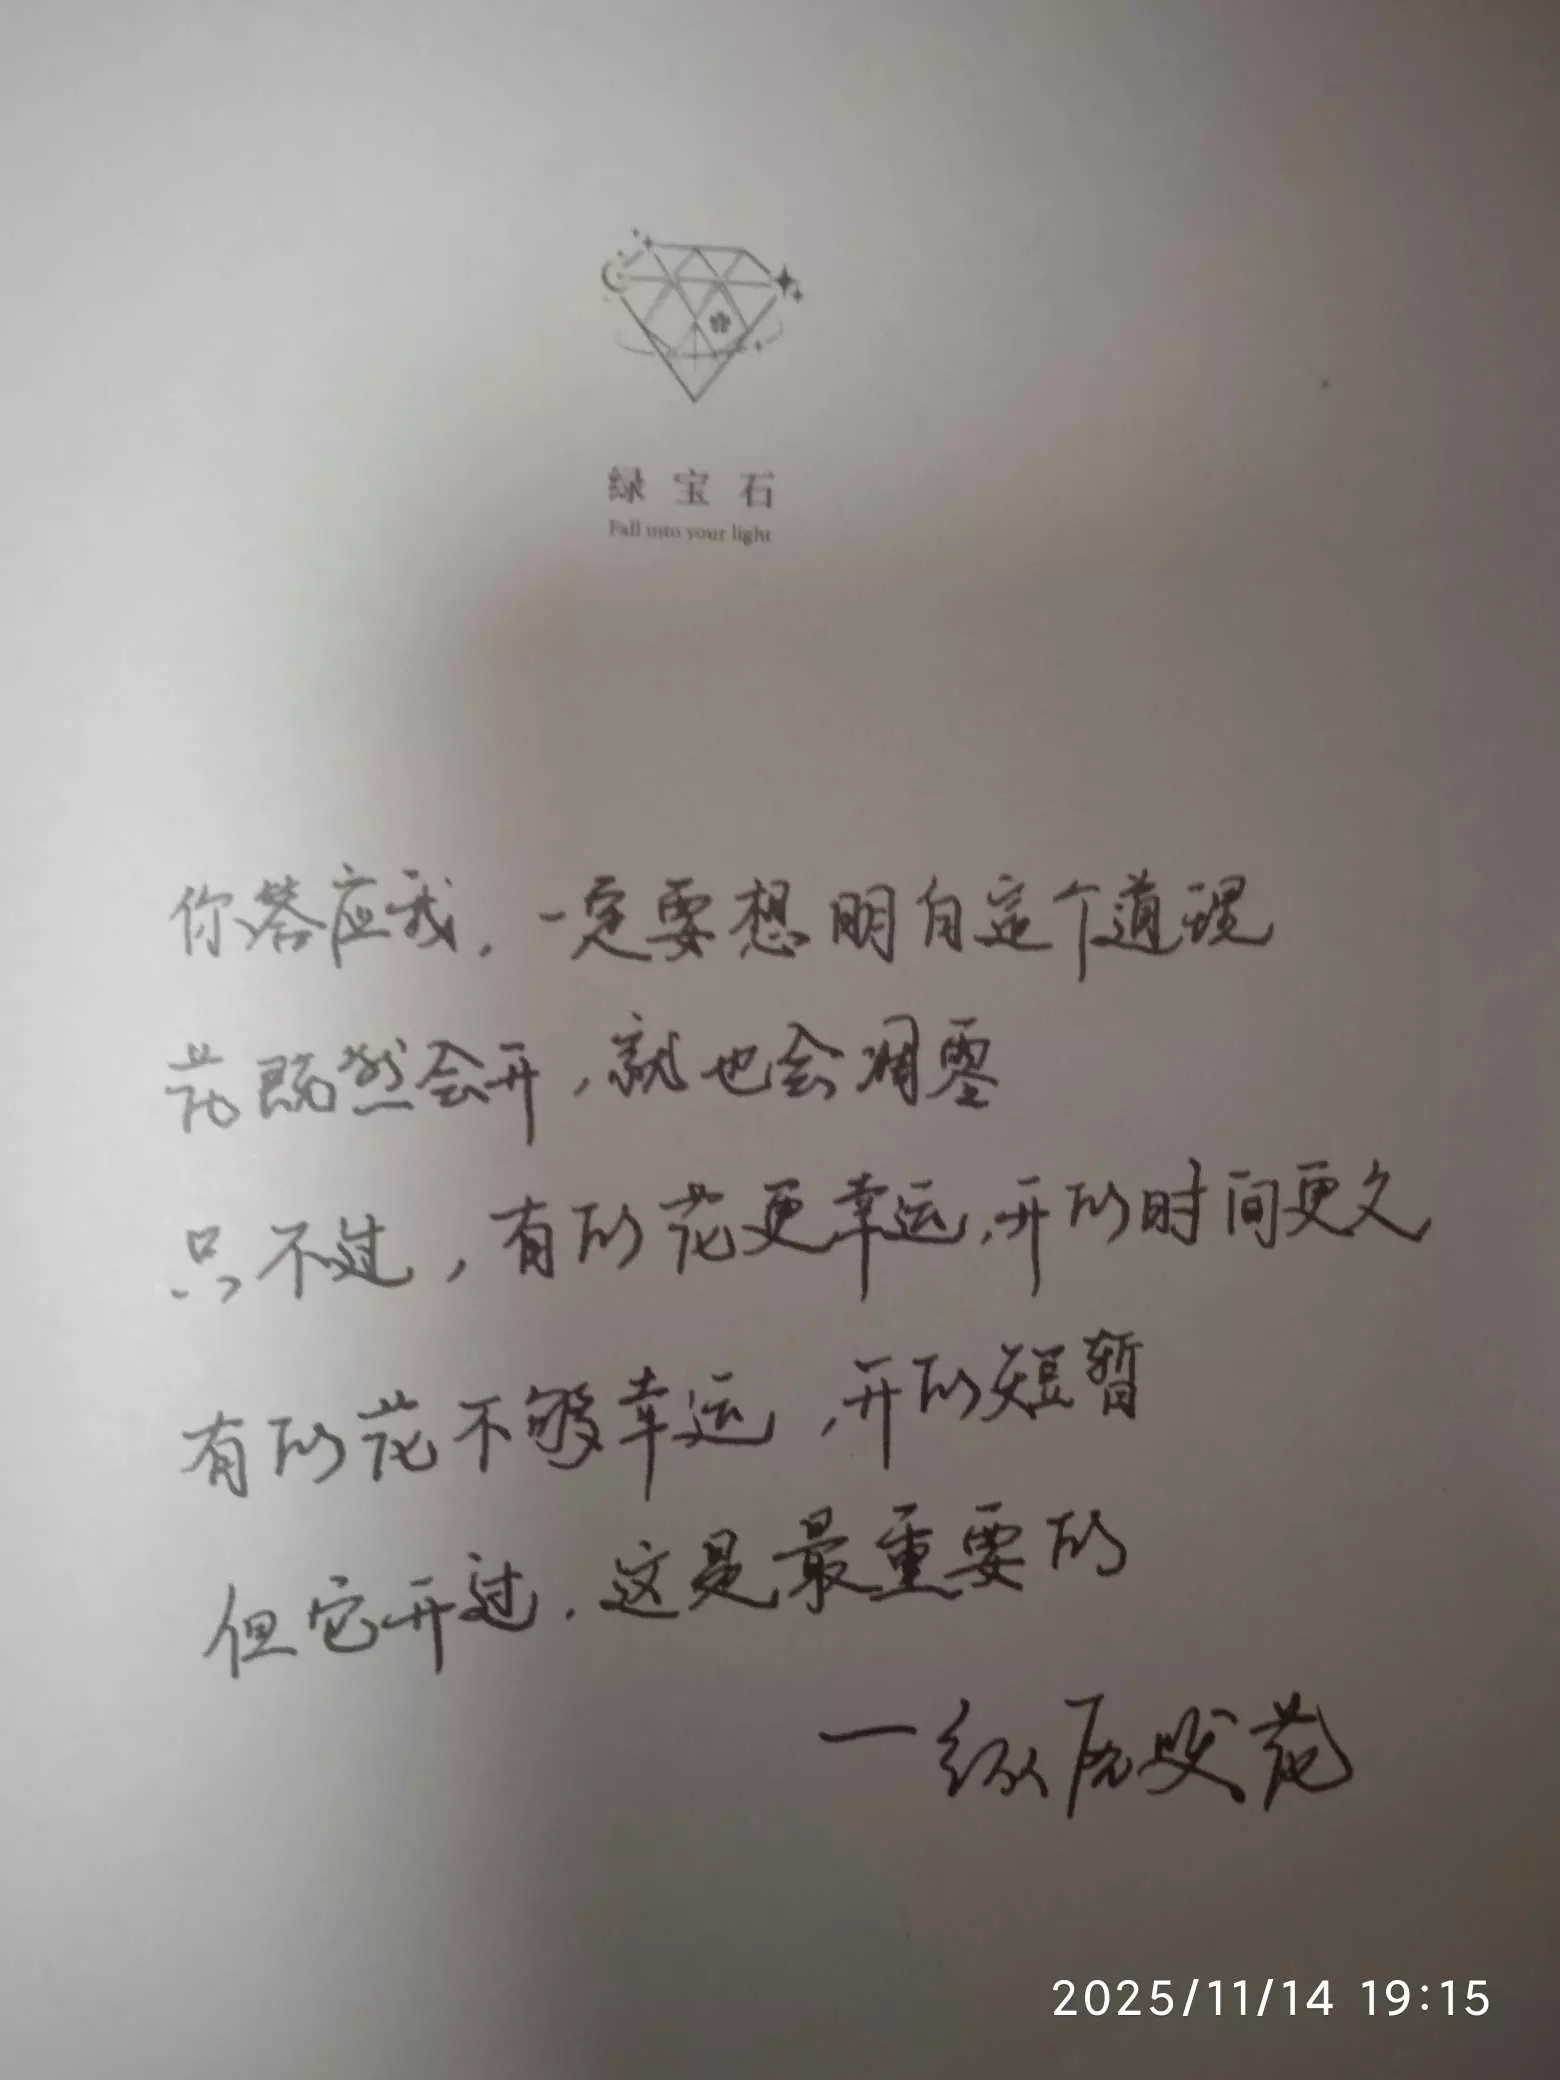 绿宝石
Fall into your light
你答应我，一定要想明白这个道理
花既然会开，就也会凋零
只不过，有的花更幸运，开的时间更久
有的花不够幸运，开的短暂
但它开过，这是最重要的
一纵虎嗅花
2025/11/14 19:15